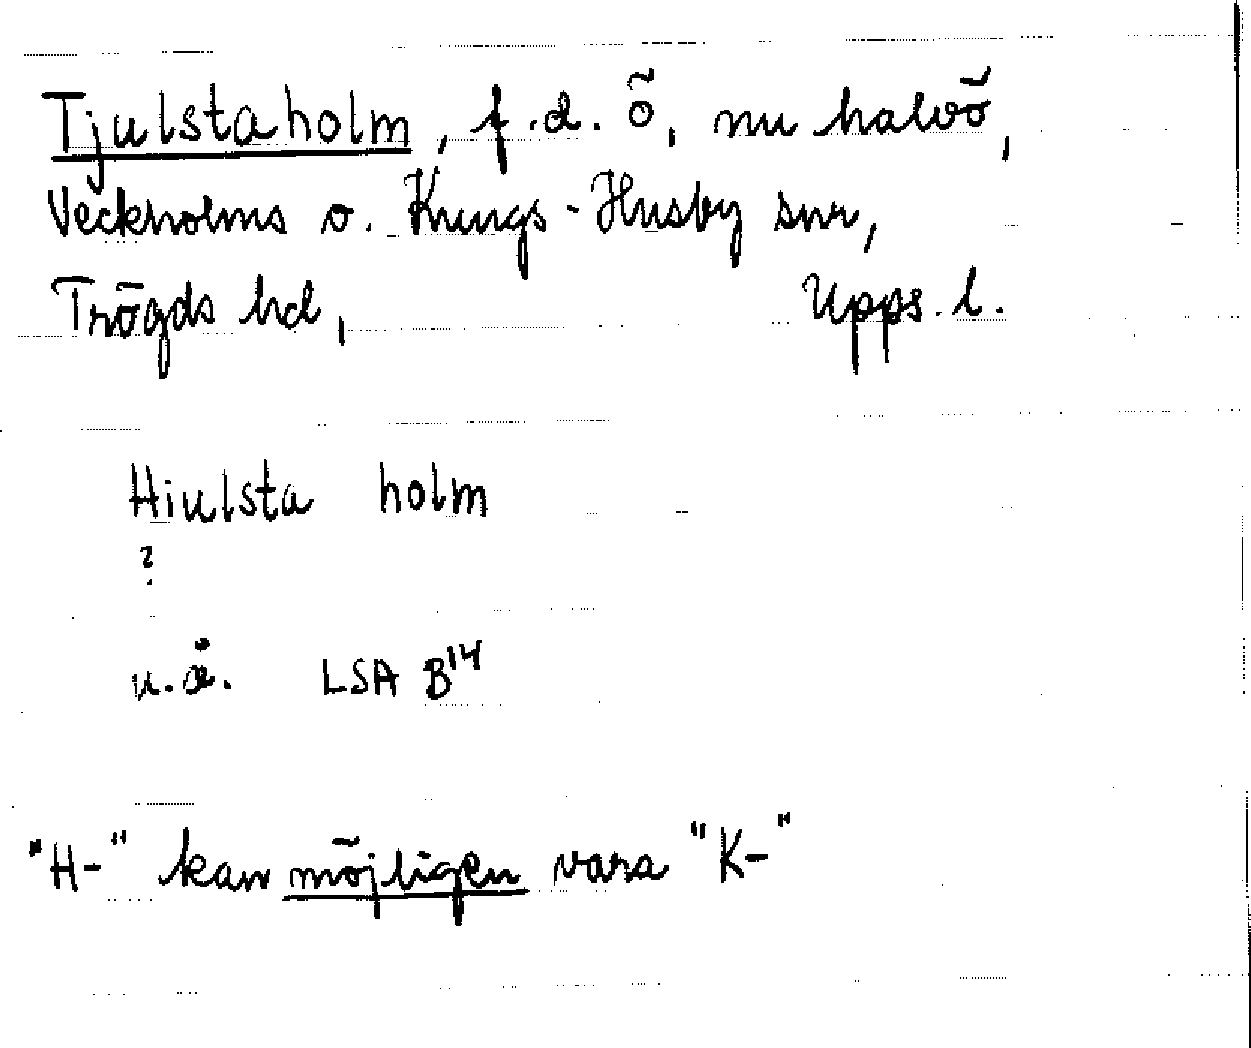 Tjulstaholm, f.d. ö, nu halvö,
Veckholms o. Kungs-Husby snr,
Trögds hd, Upps. l.
Hiulsta holm
?
u.å. LSA B14
"H-" kan möjligen vara "K-"